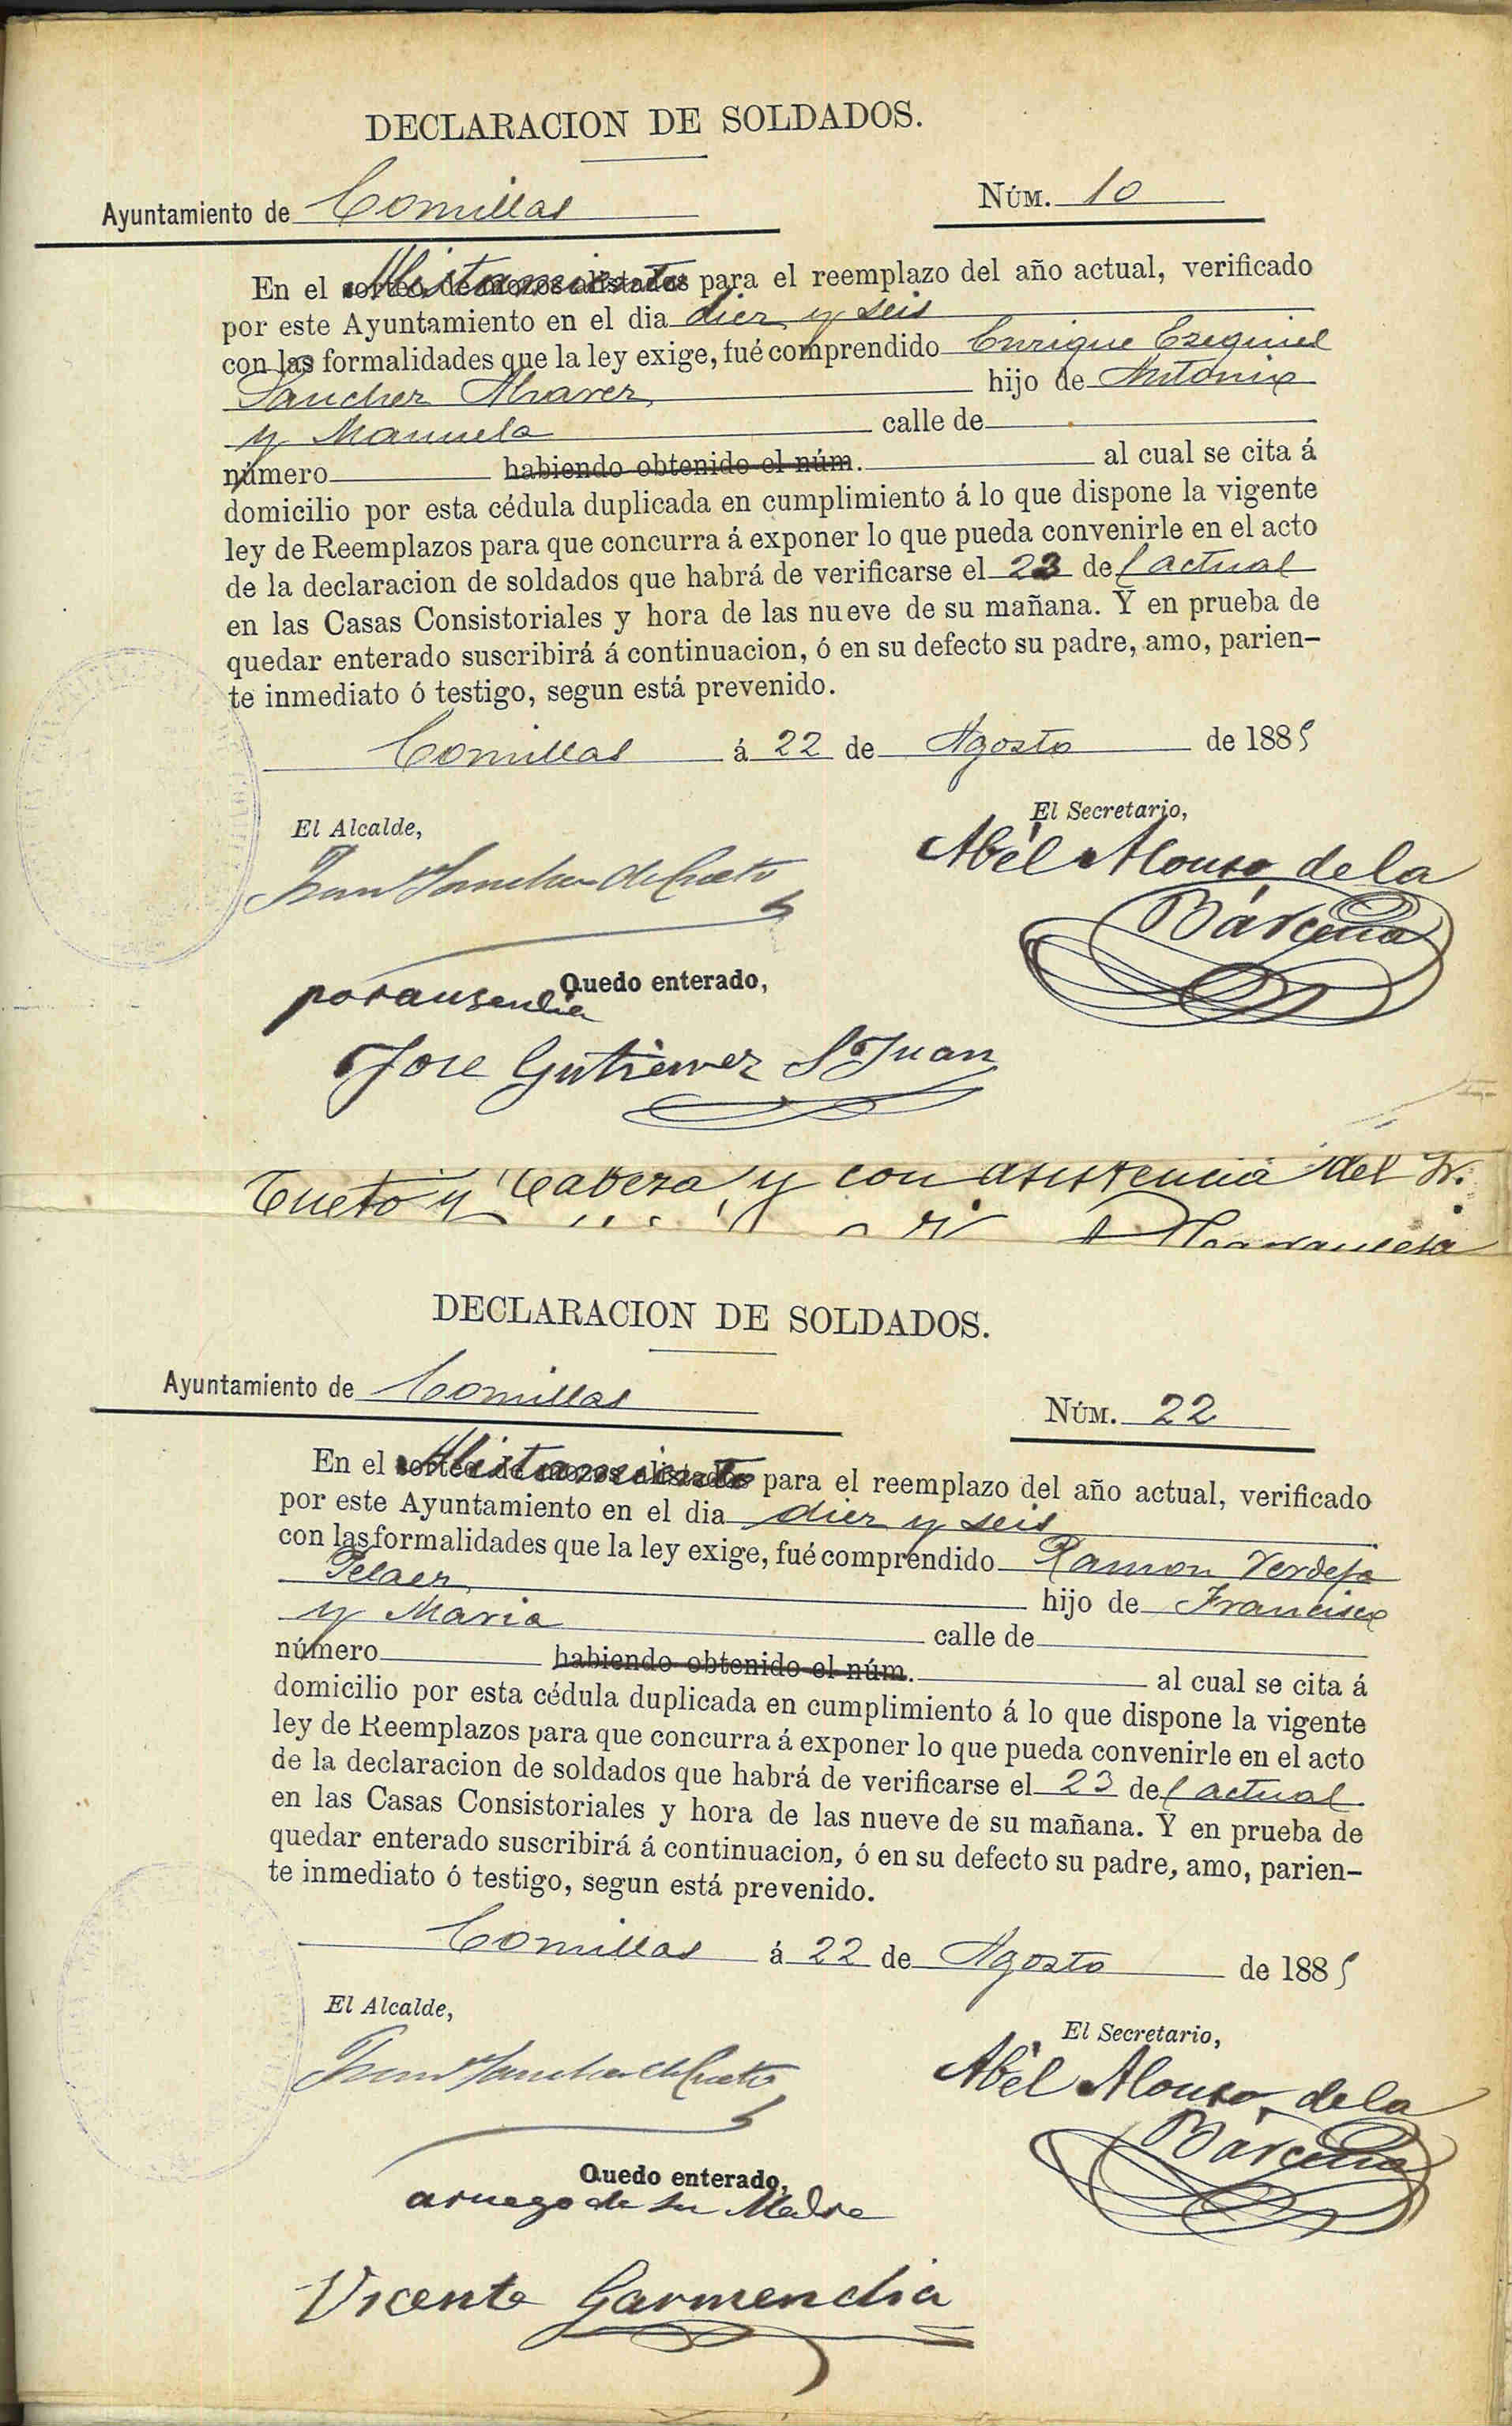 DECLARACION DE SOLDADOS.
Ayuntamiento de Comillas
NÚM. 10
En el Alistamiento para el reemplazo del año actual, verificado
por este Ayuntamiento en el dia diez y seis
con las formalidades que la ley exige, fué comprendido Enrique Ezequiel
Sanchez Alvarez hijo de Antonio
y Manuela calle de
número habiendo obtenido el núm. al cual se cita á
domicilio por esta cédula duplicada en cumplimiento á lo que dispone la vigente
ley de Reemplazos para que concurra á exponer lo que pueda convenirle en el acto
de la declaracion de soldados que habrá de verificarse el 23 del actual
en las Casas Consistoriales y hora de las nueve de su mañana. Y en prueba de
quedar enterado suscribirá á continuacion, ó en su defecto su padre, amo, parien-
te inmediato ó testigo, segun está prevenido.
Comillas á 22 de Agosto de 1885
El Alcalde,
El Secretario,
Juan Sanchez de Cueto
Abel Alonso de la
Bárcena
Quedo enterado,
por ausencia
Jose Gutierrez S Juan
Cueto y Cabeza y con asistencia del Sr.
DECLARACION DE SOLDADOS.
Ayuntamiento de Comillas
NÚM. 22
En el Alistamiento para el reemplazo del año actual, verificado
por este Ayuntamiento en el dia diez y seis
con las formalidades que la ley exige, fué comprendido Ramon Verdeja
Pelaez hijo de Francisco
y Maria calle de
número habiendo obtenido el núm. al cual se cita á
domicilio por esta cédula duplicada en cumplimiento á lo que dispone la vigente
ley de Reemplazos para que concurra á exponer lo que pueda convenirle en el acto
de la declaracion de soldados que habrá de verificarse el 23 del actual
en las Casas Consistoriales y hora de las nueve de su mañana. Y en prueba de
quedar enterado suscribirá á continuacion, ó en su defecto su padre, amo, parien-
te inmediato ó testigo, segun está prevenido.
Comillas á 22 de Agosto de 1885
El Alcalde,
El Secretario,
Juan Sanchez de Cueto
Abel Alonso de la
Bárcena
Quedo enterado,
a ruego de su Madre
Vicente Garmendia